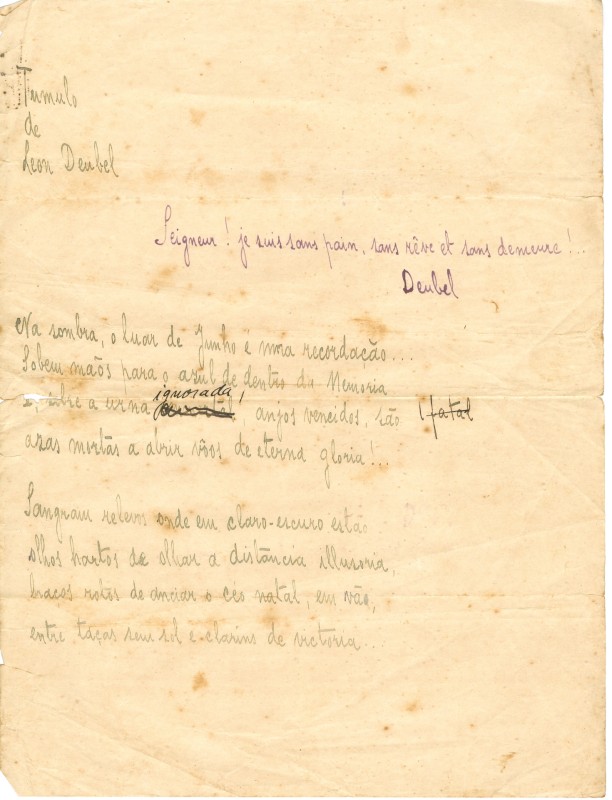 Tumulo
de
Leon Deubel
Seigneur! je suis sans pain, sans rêve et sans demeure!...
Deubel
Na sombra, o luar de Junho é uma recordação...
Sobem mãos para o azul de dentro da Memoria
E, sobre a urna ignorada, anjos vencidos, são fatal
azas mortas a abrir vôos de eterna gloria!...
Sangram relevos onde em claro-escuro estão
olhos hartos de olhar a distância illusoria,
braços rotos de anciar o céo natal, em vão,
entre taças sem sol e clarins de victoria...